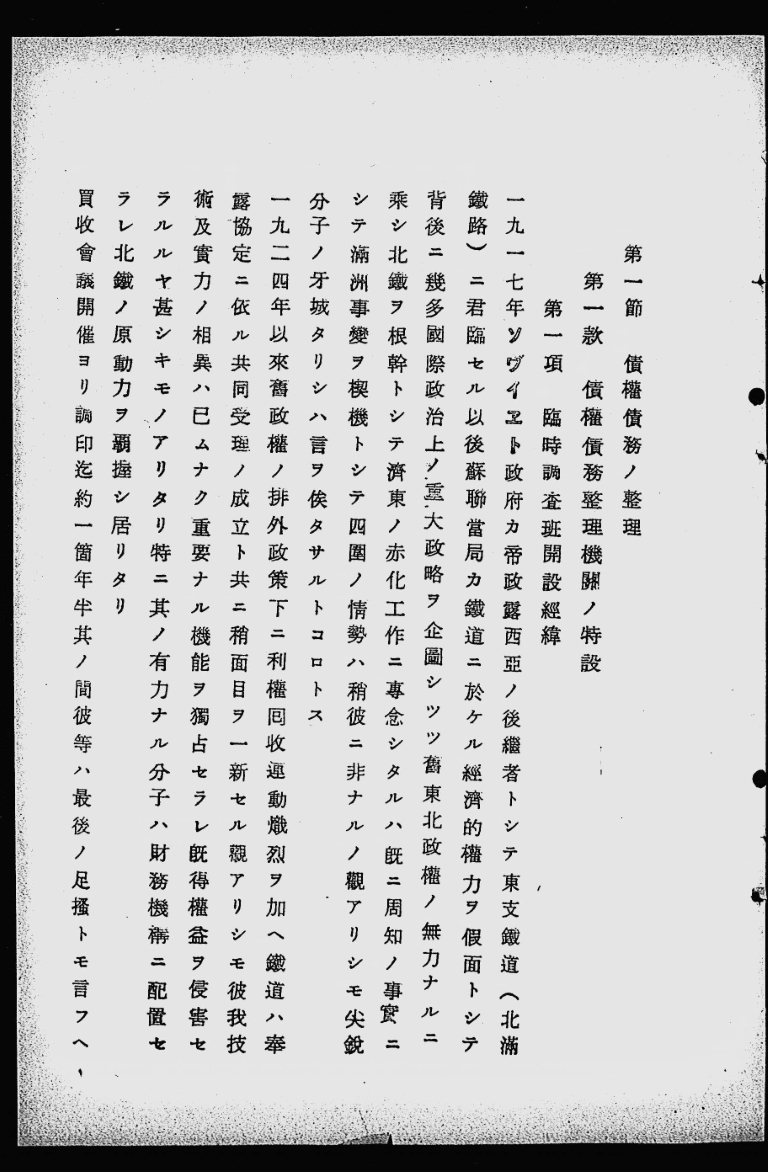 第一節　債權債務ノ整理
第一款　債權債務整理機關ノ特設
第一項　臨時調査班開設經緯
一九一七年ソヴイエト政府カ帝政露西亞ノ後繼者トシテ東支鐵道（北滿
鐵路）ニ君臨セル以後蘇聯當局カ鐵道ニ於ケル經濟的權力ヲ假面トシテ
背後ニ幾多國際政治上ノ重大政略ヲ企圖シツツ舊東北政權ノ無力ナルニ
乘シ北鐵ヲ根幹トシテ濟東ノ赤化工作ニ專念シタルハ既ニ周知ノ事實ニ
シテ滿洲事變ヲ楔機トシテ四圍ノ情勢ハ稍彼ニ非ナルノ觀アリシモ尖銳
分子ノ牙城タリシハ言ヲ俟タサルトコロトス
一九二四年以來舊政權ノ排外政策下ニ利權囘收運動熾烈ヲ加ヘ鐵道ハ奉
露協定ニ依ル共同受理ノ成立ト共ニ稍面目ヲ一新セル觀アリシモ彼我技
術及實力ノ相異ハ已ムナク重要ナル機能ヲ獨占セラレ既得權益ヲ侵害セ
ラルルヤ甚シキモノアリタリ特ニ其ノ有力ナル分子ハ財務機構ニ配置セ
ラレ北鐵ノ原動力ヲ覇握シ居リタリ
買收會議開催ヨリ調印迄約一箇年半其ノ間彼等ハ最後ノ足搔トモ言フヘ、